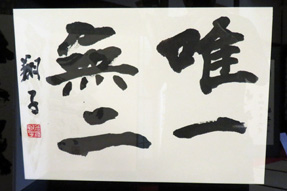 唯一
無二
翔子